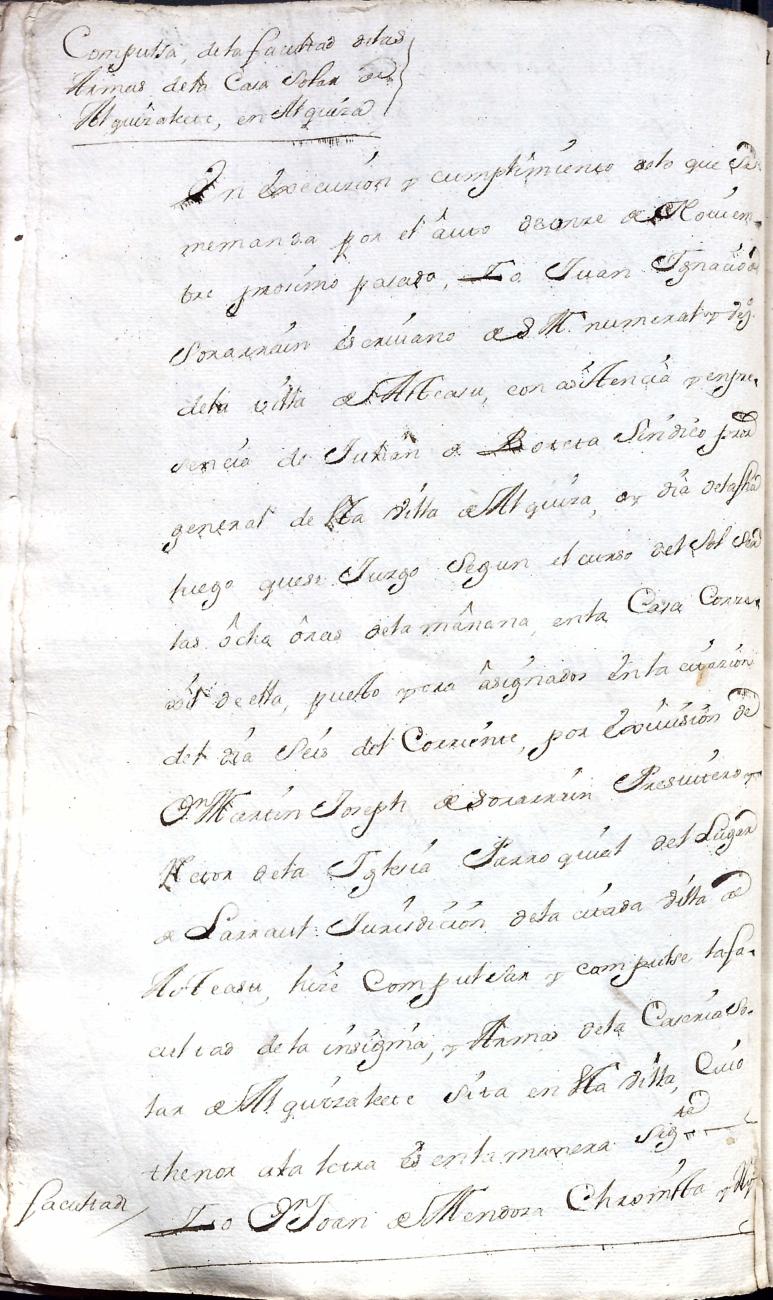 Compulsa, dela facultad delas
Armas dela Casa Solar de
Alquizalete, en Alquiza
En execucion y cumplimiento delo que Se
memanda por el auto de onze de Noviem-
bre proximo pasado, Yo Juan Ignacio de
Sorarrain escrivano de S. M. numeral y
dela villa de Asteasu, con asistencia y enpre-
sencia de Julian de Boreta Sindico pror
general de dha villa de Alquiza, oy dia dela fha
luego quese Juzgo Segun el curso del Sol ser
las ocha oras dela mañana, enla Casa Conze-
xil de ella, puesto y ora asignados en la citazion
del dia Seis del Corriente, por exivision de
Dn Martin Joseph de Sorarrain Presvitero y
Retor dela Iglesia Parroquial del Lugar
de Larraul Jurisdicion dela citada villa de
Asteasu, hize Compulsar y compulse la fa-
cultad de la insignia, y Armas dela Caseria So-
lar de Alquizalete sita en dha villa, Cuio
thenor ala letra es en la manera Sigte
facultad
Yo Dn Joan de Mendoza Chronista y